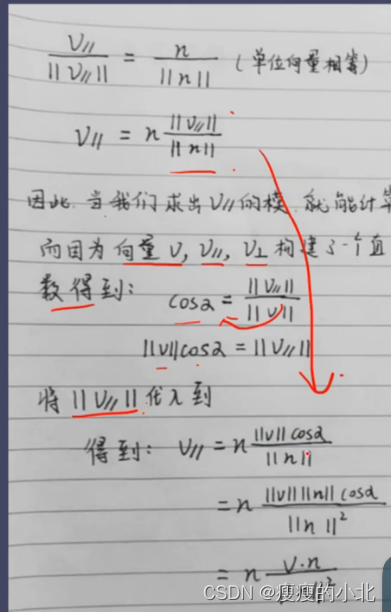 V∥/||V∥|| = n/||n|| (单位向量相等)
V∥ = n ||V∥||/||n||
因此,当我们求出V∥的模,就能计算
而因为向量V, V∥, V⊥构建了一个直
数得到: cosα = ||V∥||/||V||
||V||cosα = ||V∥||
将||V∥||代入到
得到: V∥ = n ||V||cosα/||n||
= n ||V|| ||n|| cosα/||n||²
= n V·n/||²
CSDN @瘦瘦的小北